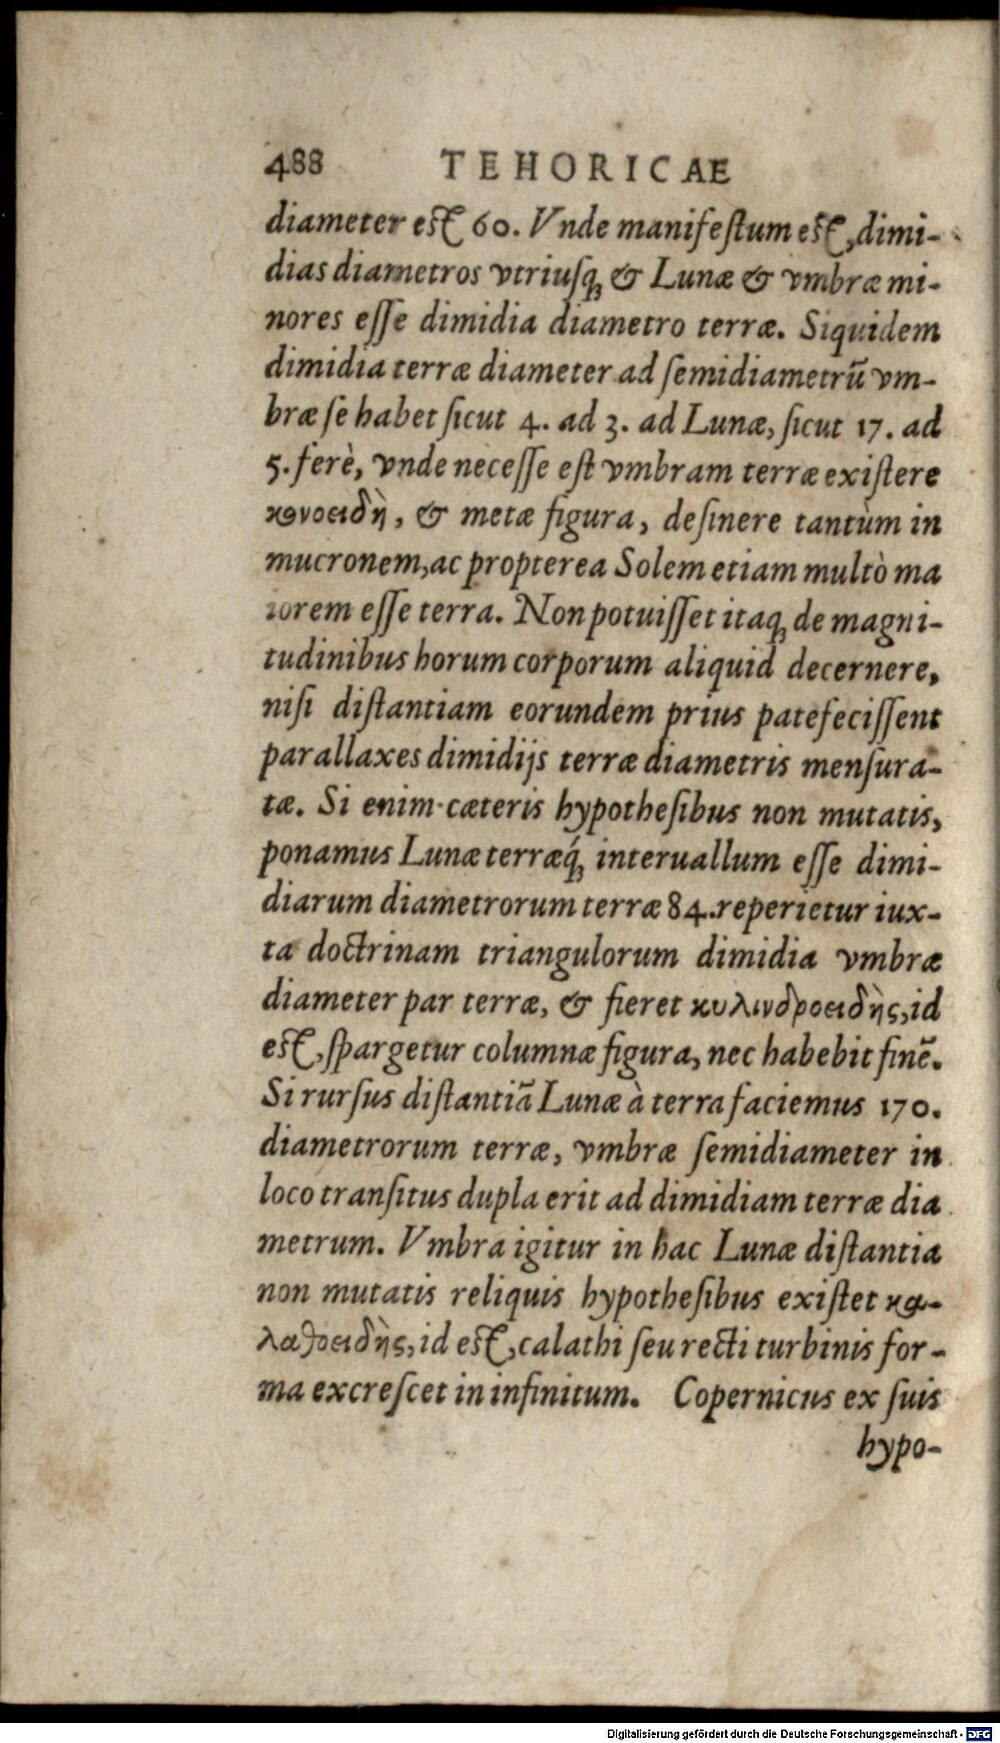 488 TEHORICAE
diameter est 60. Vnde manifeſtum est, dimi-
dias diametros vtriuſq; & Lunæ & vmbræ mi-
nores eſſe dimidia diametro terræ. Siquidem
dimidia terræ diameter ad ſemidiametrū vm-
bræ ſe habet ſicut 4. ad 3. ad Lunæ, ſicut 17. ad
5. ferè, vnde neceſſe eſt vmbram terræ exiſtere
κονοειδὴ, & metæ figura, deſinere tantùm in
mucronem, ac propterea Solem etiam multò ma
iorem eſſe terra. Non potuiſſet itaq; de magni-
tudinibus horum corporum aliquid decernere,
niſi diſtantiam eorundem prius patefeciſſent
parallaxes dimidijs terræ diametris menſura-
tæ. Si enim cæteris hypotheſibus non mutatis,
ponamus Lunæ terræq́; interuallum eſſe dimi-
diarum diametrorum terræ 84. reperietur iux-
ta doctrinam triangulorum dimidia vmbræ
diameter par terræ, & fieret κυλινδροειδὴς, id
est, ſpargetur columnæ figura, nec habebit finē.
Si rurſus diſtantiā Lunæ à terra faciemus 170.
diametrorum terræ, vmbræ ſemidiameter in
loco tranſitus dupla erit ad dimidiam terræ dia
metrum. Vmbra igitur in hac Lunæ diſtantia
non mutatis reliquis hypotheſibus exiſtet κα-
λαθοειδὴς, id est, calathi ſeu recti turbinis for-
ma excreſcet in infinitum. Copernicus ex ſuis
hypo-
Digitalisierung gefördert durch die Deutsche Forschungsgemeinschaft - DFG